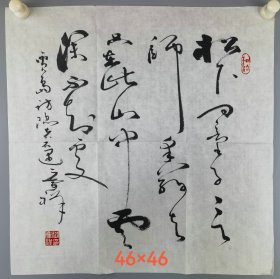 松下问童子言
师采药去
只在此山中云
深不知处
贾岛访隐者不遇
46×46